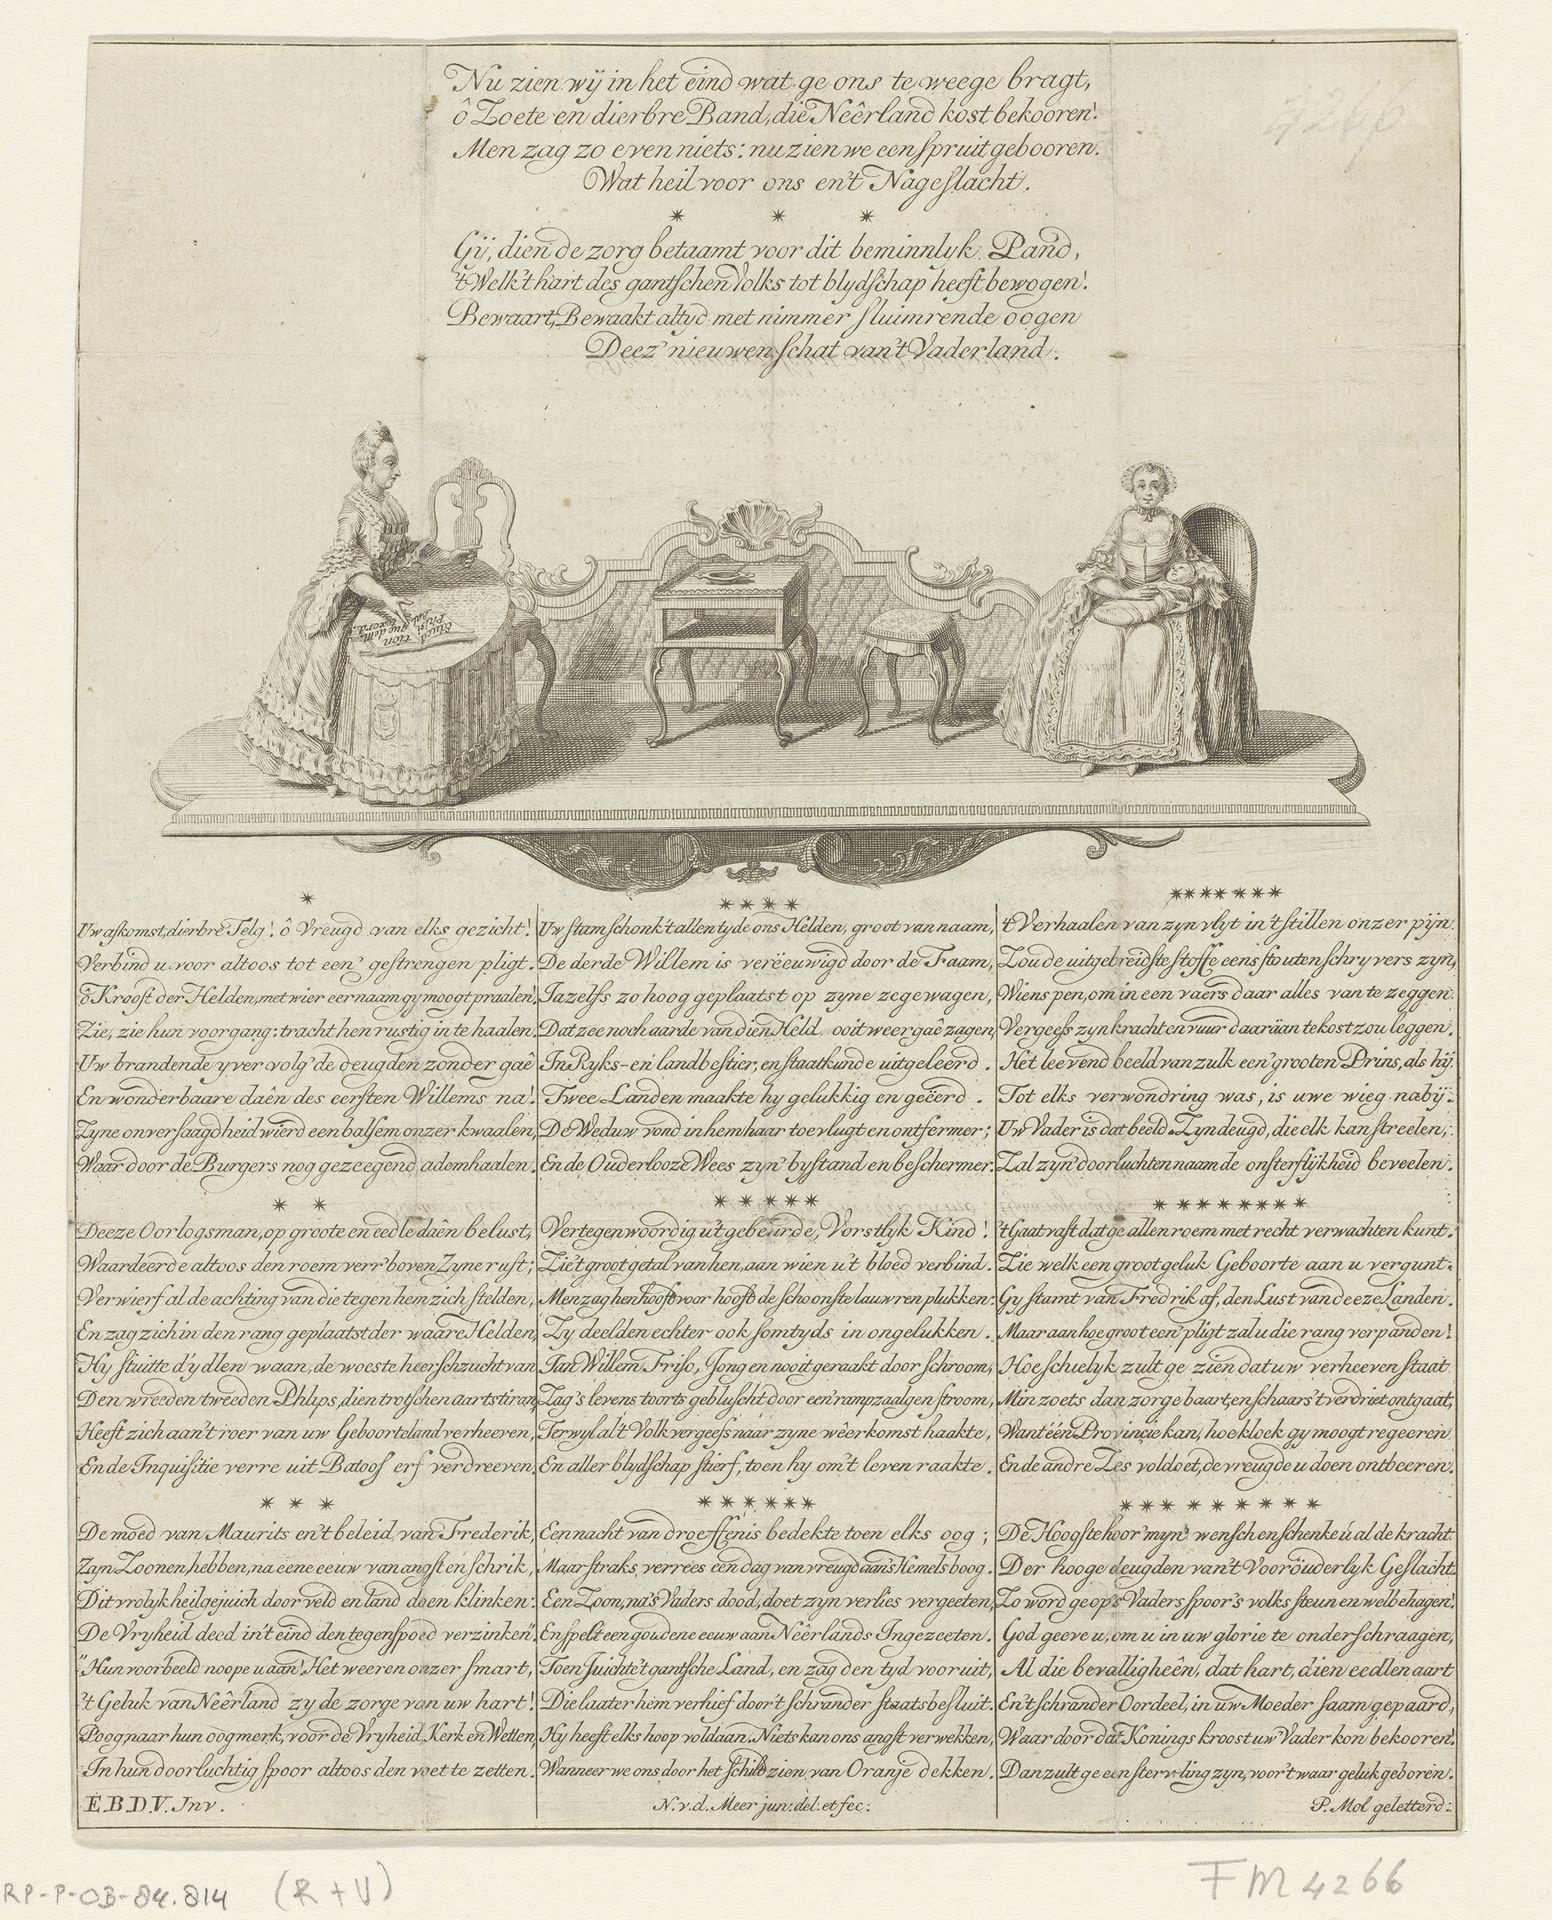 Nu zien wij in het eind wat ge ons te weege bragt,
ô Zoete en dierbre Band, die Neêrland kost bekooren!
Men zag zo even niets: nu zien we een spruit gebooren.
Wat heil voor ons en't Nageslacht.
* * *
Gij, dien de zorg betaamt voor dit beminnlyk Pand,
't Welk 't hart des gantschen Volks tot blydschap heeft bewogen!
Bewaart, Bewaakt altyd met nimmer sluimrende oogen
Deez' nieuwen schat van't Vaderland.
4266
*
Uw afkomst, dierbre Telg! ô Vreugd van elks gezicht!
Verbind u voor altoos tot een' gestrengen pligt.
ô Kroost der Helden, met wier eernaam gy moogt praalen!
Zie, zie hun voorgang: tracht hen rustig in te haalen.
Uw brandende yver volg' de deugden zonder gaê
En wonderbaare daên des eersten Willems na!
Zyne onversaagdheid wierd een balsem onzer kwaalen,
Waar door de Burgers nog gezeegend ademhaalen.
* *
Deeze Oorlogsman, op groote en eedle daên belust,
Waardeerde altoos den roem verr' boven Zyne rust;
Verwierf al de achting van die tegen hem zich stelden,
En zag zich in den rang geplaatst der waare Helden,
Hy stuitte d'ydlen waan, de woeste heerschzucht van
Den wreeden tweeden Phlips, dien trotschen aartstiran,
Heeft zich aan't roer van uw Geboorteland verheeven,
En de Inquisitie verre uit Batoos erf verdreeven.
* * *
De moed van Maurits en't beleid van Frederik,
Zyn Zoonen, hebben, na eene eeuw van angst en schrik,
Dit vrolyk heilgejuich door veld en land doen klinken:
De Vryheid deed in't eind den tegenspoed verzinken".
"Hun voorbeeld noope u aan! Het weeren onzer smart,
't Geluk van Neêrland zy de zorge van uw hart!
Poog naar hun oogmerk, voor de Vryheid, Kerk en Wetten,
In hun doorluchtig spoor altoos den voet te zetten.
E.B.D.V. Inv.
* * * *
Uw stam schonk 't allen tyde ons Helden, groot van naam,
De derde Willem is vereeuwigd door de Faam,
Ja zelfs zo hoog geplaatst op zyne zegewagen,
Dat zee noch aarde van dien Held ooit weergaê zagen,
In Ryks- en landbestier, en staatkunde uitgeleerd.
Twee Landen maakte hy gelukkig en geëerd.
De Weduw vond in hem haar toevlugt en ontfermer;
En de Ouderlooze Wees zyn' bystand en beschermer.
* * * * *
Vertegenwoordig u't gebeurde, Vorstlyk Kind!
Zie't groot getal van hen, aan wien u't bloed verbind.
Men zag hen hooft voor hooft de schoonste lauwren plukken:
Zy deelden echter ook somtyds in ongelukken.
Jan Willem Friso, Jong en nooit geraakt door schroom,
Zag's levens toorts gebluscht door een' rampzaalgen stroom,
Terwyl al't Volk vergeefs naar zyne wêerkomst haakte,
En aller blydschap stierf, toen hy om't leven raakte.
* * * * * *
Een nacht van droeffenis bedekte toen elks oog;
Maar straks verrees een dag van vreugd aan's Hemels boog.
Een Zoon, na's Vaders dood, doet zyn verlies vergeeten,
En spelt een goudene eeuw aan Neêrlands Ingezeeten.
Toen Juichte't gantsche Land, en zag den tyd vooruit,
Die laater hem verhief door't schrander staatsbesluit.
Hy heeft elks hoop voldaan. Niets kan ons angst verwekken,
Wanneer we ons door het schild zien van Oranje dekken.
N.v.d. Meer jun: del. et fec:
* * * * * * *
't Verhaalen van zyn vlyt in't stillen onzer pijn
Zou de uitgebreidste stoffe eens stouten schryvers zyn,
Wiens pen, om in een vaers daar alles van te zeggen
Vergeefs zyn kracht en vuur daaräan te kost zou leggen.
Het leevend beeld van zulk een' grooten Prins, als hij
Tot elks verwondring was, is uwe wieg nabij:
Uw Vader is dat beeld. Zyn deugd, die elk kan streelen,
Zal zyn' doorluchten naam de onsterflijkheid beveelen.
* * * * * * * *
't Gaat vast dat ge allen roem met recht verwachten kunt:
Zie welk een groot geluk Geboorte aan u vergunt:
Gy stamt van Fredrik af, den Lust van deeze Landen.
Maar aan hoe groot een' pligt zal u die rang verpanden!
Hoe schielyk zult ge zien dat uw verheeven staat
Min zoets dan zorge baart, en schaars't verdriet ontgaat,
Want één Provincie kan, hoe kloek gy moogt regeeren
En de andre Zes voldoet, de vreugde u doen ontbeeren.
* * * * * * * * *
De Hoogste hoor' myn' wensch en schenke ú al de kracht
Der hooge deugden van't Vooröuderlyk Geslacht.
Zo word ge op's Vaders spoor's volks steun en welbehagen!
God geeve u, om u in uw glorie te onderschraagen,
Al die bevalligheên, dat hart, dien eedlen aart
En't schrander Oordeel, in uw Moeder saam gepaard,
Waar door dat Konings kroost uw Vader kon bekooren!
Dan zult ge een sterv-ling zyn, voor't waar geluk geboren.
P. Mol geletterd:
RP-P-OB-84.814 (R+V)
FM 4266